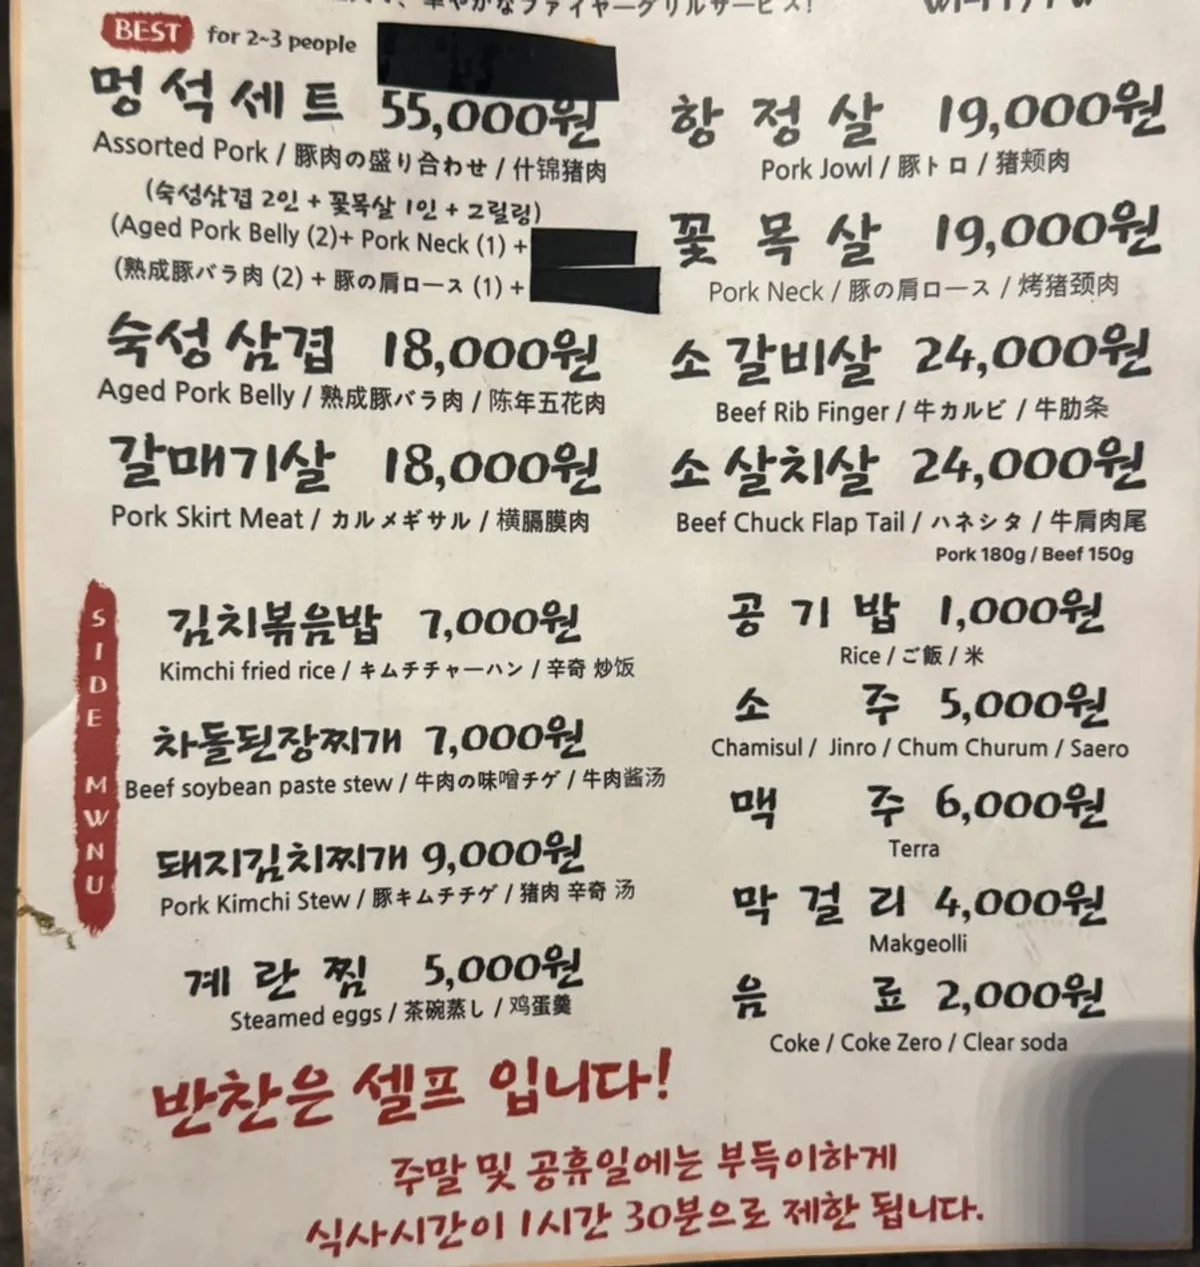 華やかなファイヤーグリルサービス!
BEST for 2~3 people
멍석세트 55,000원
Assorted Pork / 豚肉の盛り合わせ / 什锦猪肉
(숙성삼겹 2인 + 꽃목살 1인 + 그릴링)
(Aged Pork Belly (2)+ Pork Neck (1) +
(熟成豚バラ肉 (2) + 豚の肩ロース (1) +
숙성삼겹 18,000원
Aged Pork Belly / 熟成豚バラ肉 / 陈年五花肉
갈매기살 18,000원
Pork Skirt Meat / カルメギサル / 横膈膜肉
항정살 19,000원
Pork Jowl / 豚トロ / 猪颊肉
꽃목살 19,000원
Pork Neck / 豚の肩ロース / 烤猪颈肉
소갈비살 24,000원
Beef Rib Finger / 牛カルビ / 牛肋条
소살치살 24,000원
Beef Chuck Flap Tail / ハネシタ / 牛肩肉尾
Pork 180g / Beef 150g
SIDE MWNU
김치볶음밥 7,000원
Kimchi fried rice / キムチチャーハン / 辛奇 炒饭
차돌된장찌개 7,000원
Beef soybean paste stew / 牛肉の味噌チゲ / 牛肉酱汤
돼지김치찌개 9,000원
Pork Kimchi Stew / 豚キムチチゲ / 猪肉 辛奇 汤
계란찜 5,000원
Steamed eggs / 茶碗蒸し / 鸡蛋羹
공기밥 1,000원
Rice / ご飯 / 米
소주 5,000원
Chamisul / Jinro / Chum Churum / Saero
맥주 6,000원
Terra
막걸리 4,000원
Makgeolli
음료 2,000원
Coke / Coke Zero / Clear soda
반찬은 셀프 입니다!
주말 및 공휴일에는 부득이하게
식사시간이 1시간 30분으로 제한 됩니다.